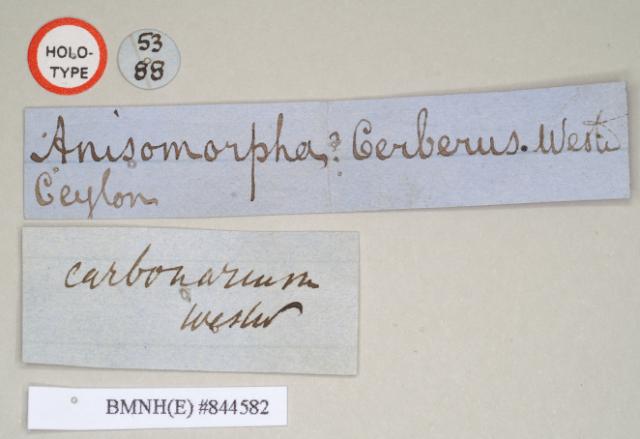 HOLO-
TYPE
53
88
Anisomorpha? Cerberus. Westw
Ceylon
carbonarium
Westw
BMNH(E) #844582